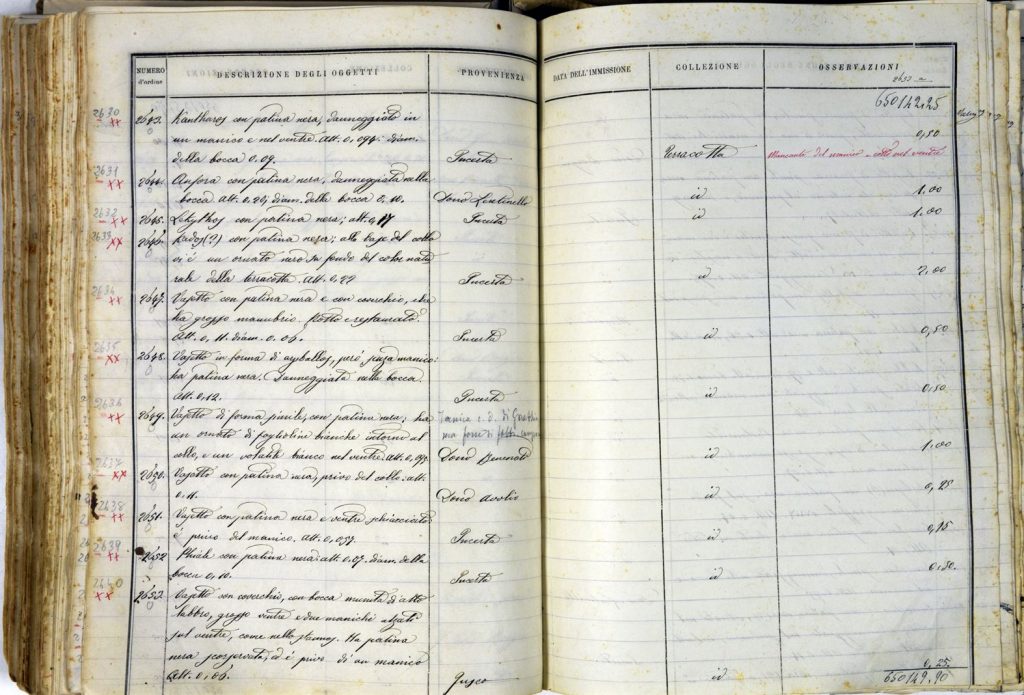 NUMERO d'ordine DESCRIZIONE DEGLI OGGETTI PROVENIENZA DATA DELL'IMMISSIONE COLLEZIONE OSSERVAZIONI
2653 a
650142,25
2630 xx 2643. Kantharos con patina nera, danneggiato in
un manico e nel ventre. Alt. 0,094. diam. 0,50
della bocca 0,09. Incerta Terracotta Mancante del manico e rotto nel ventre
2631 xx 2644. Anfora con patina nera, danneggiata nella
bocca. Alt. 0,20; diam. della bocca 0,10. Dono Lentinello id 1.00
2632 xx 2645. Lekythos con patina nera; alt. 0,17 Incerta id 1.00
2633 xx 2646. Kados(?) con patina nera; alla base del collo
vi è un ornato nero su fondo del color natu
rale della terracotta. Alt. 0,22 Incerta id 2,00
2634 xx 2647. Vasetto con patina nera e con coverchio, che
ha grosso manubrio. Rotto e restaurato.
Alt. 0,11. diam. 0,06. Incerta id 0,50
2635 xx 2648. Vasetto in forma di aryballos, però senza manico:
ha patina nera. Danneggiata nella bocca.
Alt. 0,12. Incerta id 0,50
2636 xx 2649. Vasetto di forma simile, con patina nera, ha
un ornato di foglioline bianche intorno al
collo, e un volatile bianco nel ventre. Alt. 0,095. Dono Benenati id 1.00
2637 xx 2650. Vasetto con patina nera, privo del collo: alt.
0,11. Dono Avolio id 0,25
2638 xx 2651. Vasetto con patina nera e ventre schiacciato
è privo del manico. Alt. 0,057. Incerta id 0,15
2639 xx 2652 Phiale con patina nera: alt. 0,07. diam. della
bocca 0,10. Incerta id 0,30.
2640 xx 2653. Vasetto con coverchio, con bocca munita d'alto
labbro, grosso ventre e due maniche alzati
sul ventre, come nello stamnos. Ha patina
nera scoppiata, ed è privo di un manico
Alt. 0,06. id 0,25
650149.90